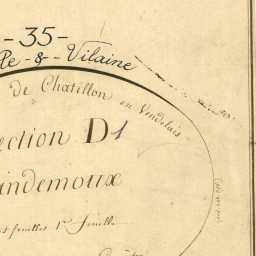 -35-
le - & - Vilaine
de Chatillon en Vendelais
ection D1
indemoux
feuilles 1re feuille